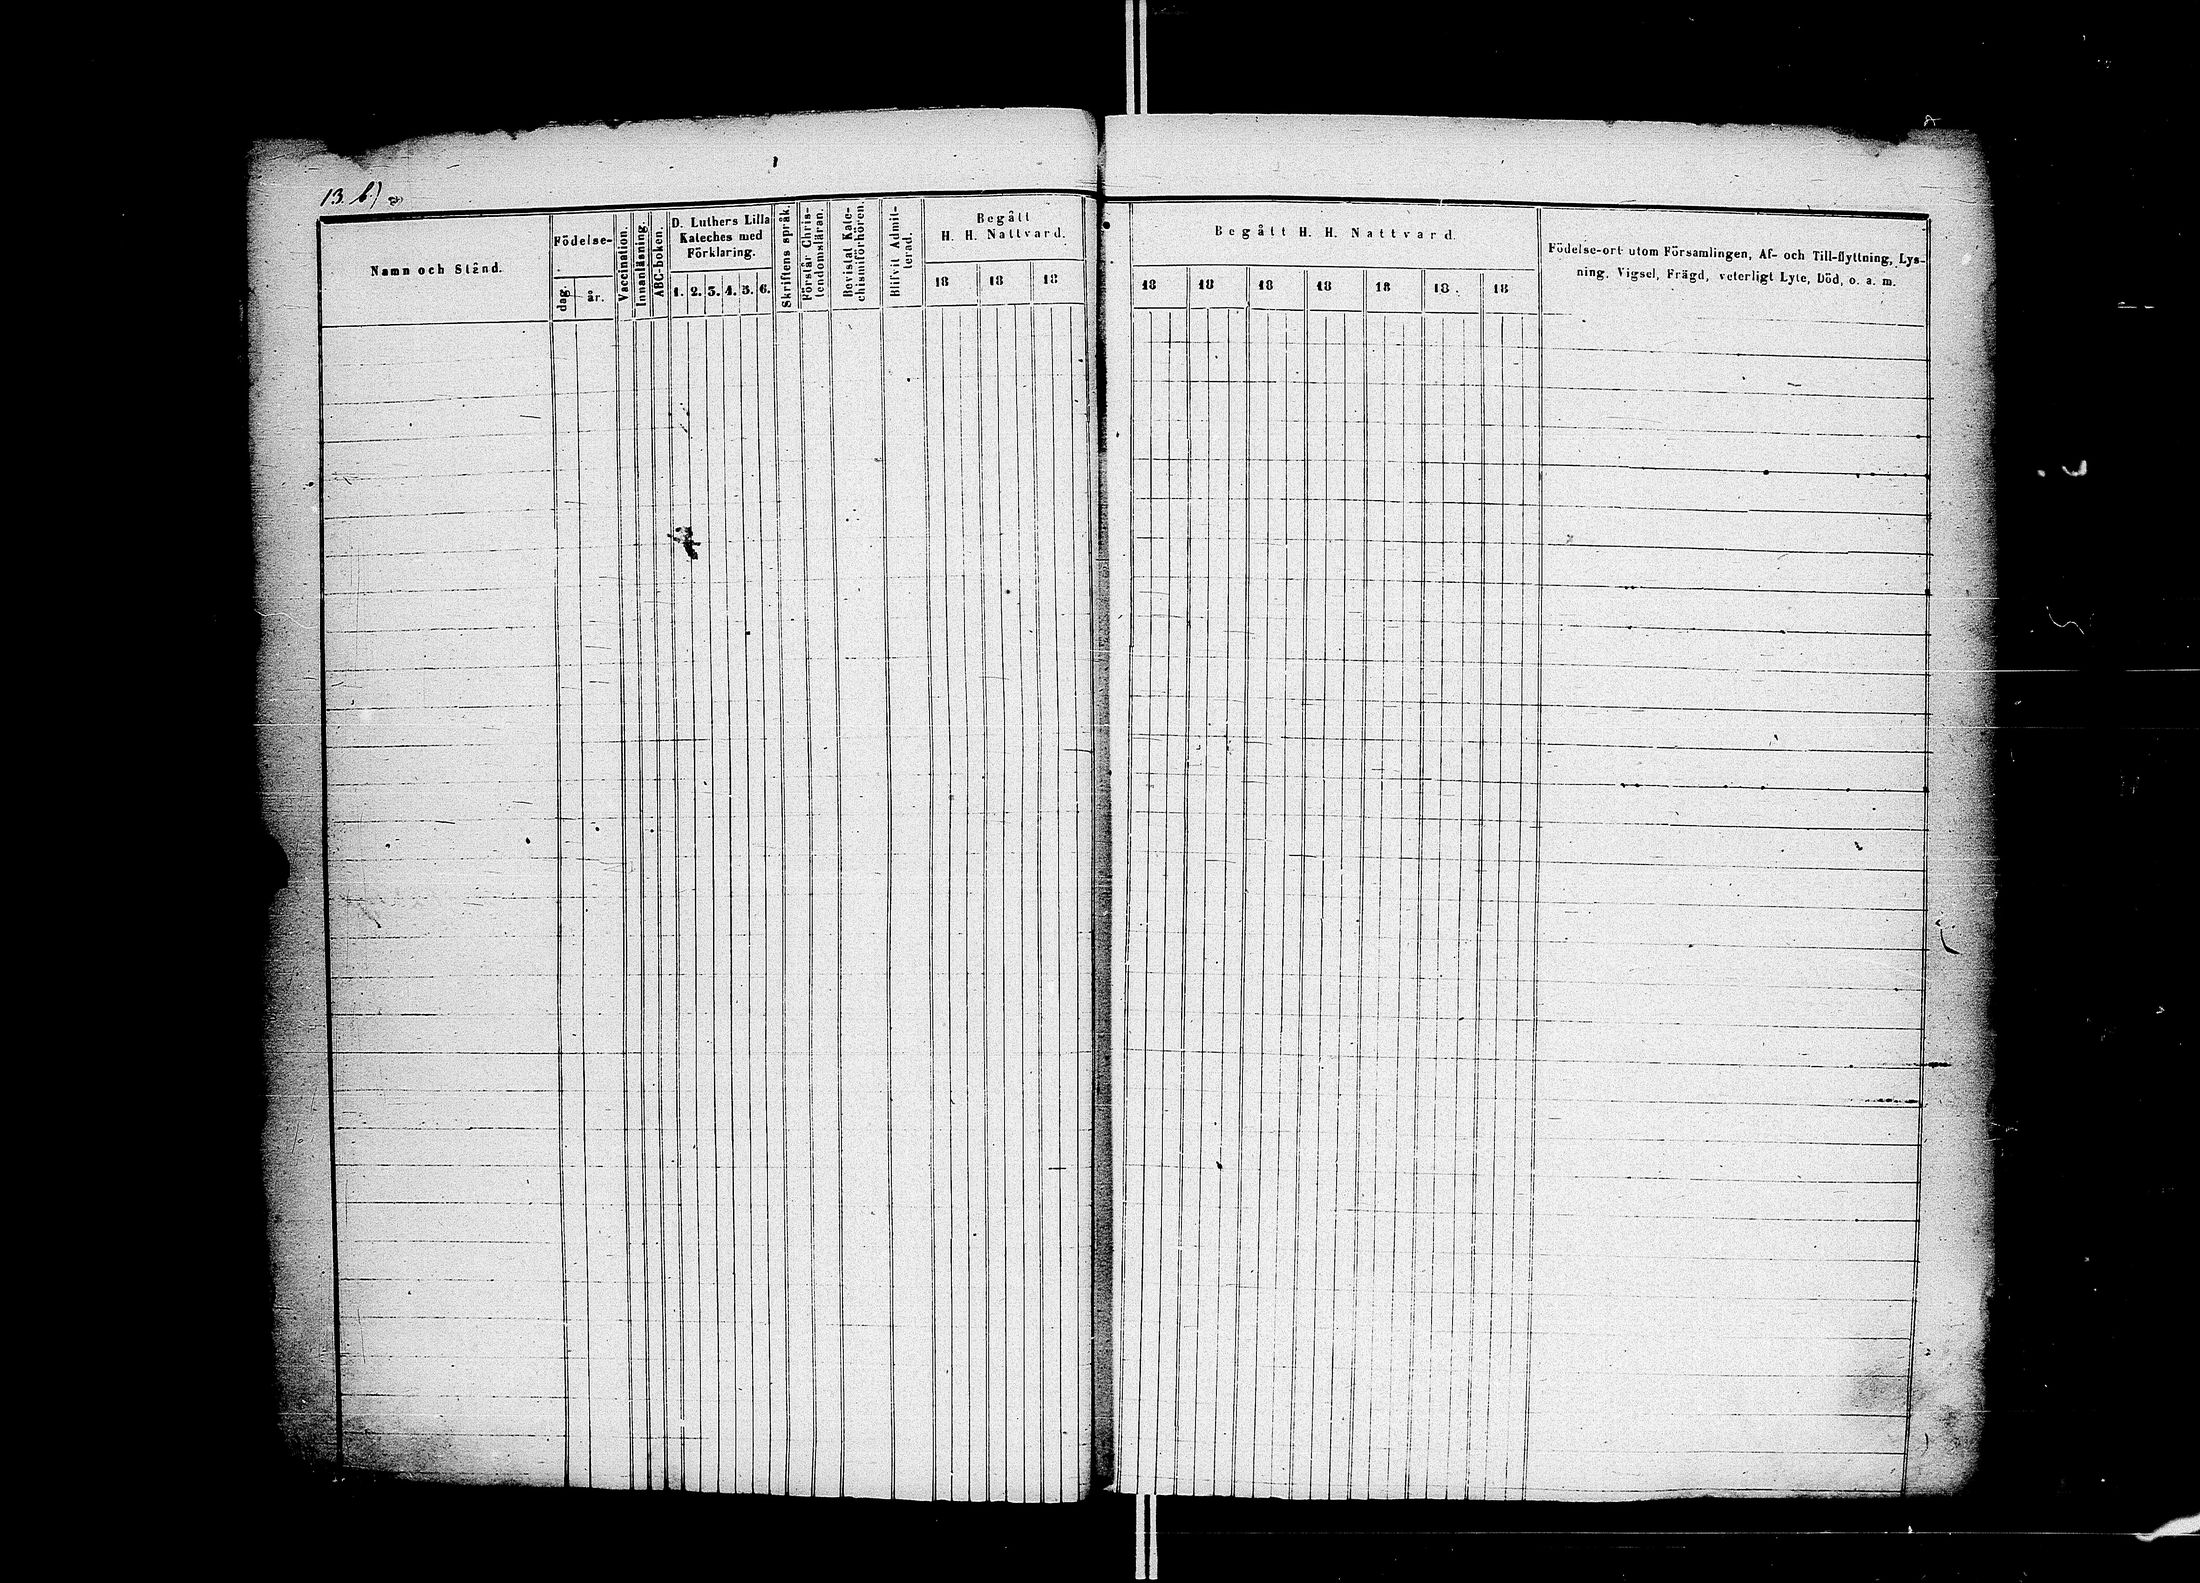 13. b)
Namn och Stånd.
Födelse-
dag.
år.
Vaccination.
Innanläsning.
ABC-boken.
D. Luthers Lilla
Kateches med
Förklaring.
1. 2. 3. 4. 5. 6.
Skriftens språk.
Förstår Chris-
tendomsläran.
Bevistat Kate-
chismiförhören.
Blifvit Admit-
terad.
Begått
H. H. Nattvard.
18 18 18
Begått H. H. Nattvard.
18 18 18 18 18 18 18
Födelse-ort utom Församlingen, Af- och Till-flyttning, Lys-
ning, Vigsel, Frägd, veterligt Lyte, Död, o. a. m.